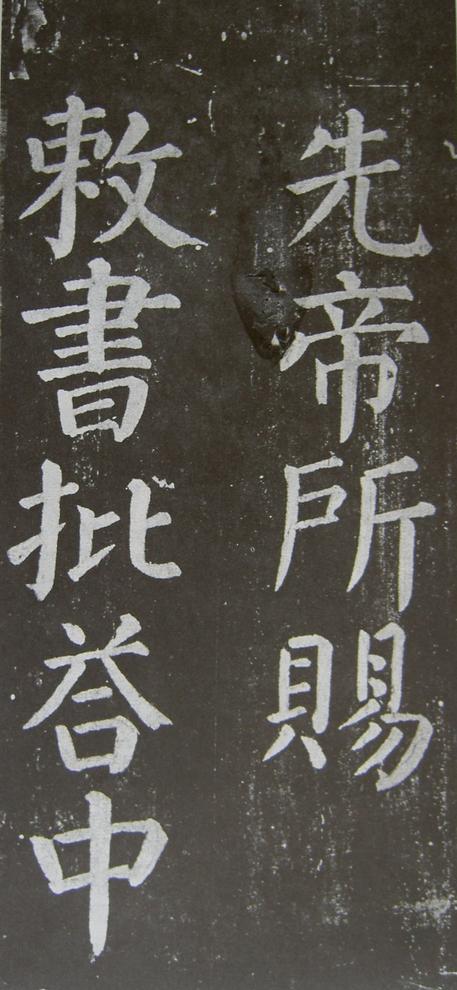 先帝所賜
敕書批荅中